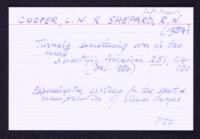 COOPER, L. N. & SHEPARD, R. N.
(1984)
Turning something over in the
mind
Scientific American 251 114
(Dec. 1984) 120
Experimental evidence for the
manipulation of visual images